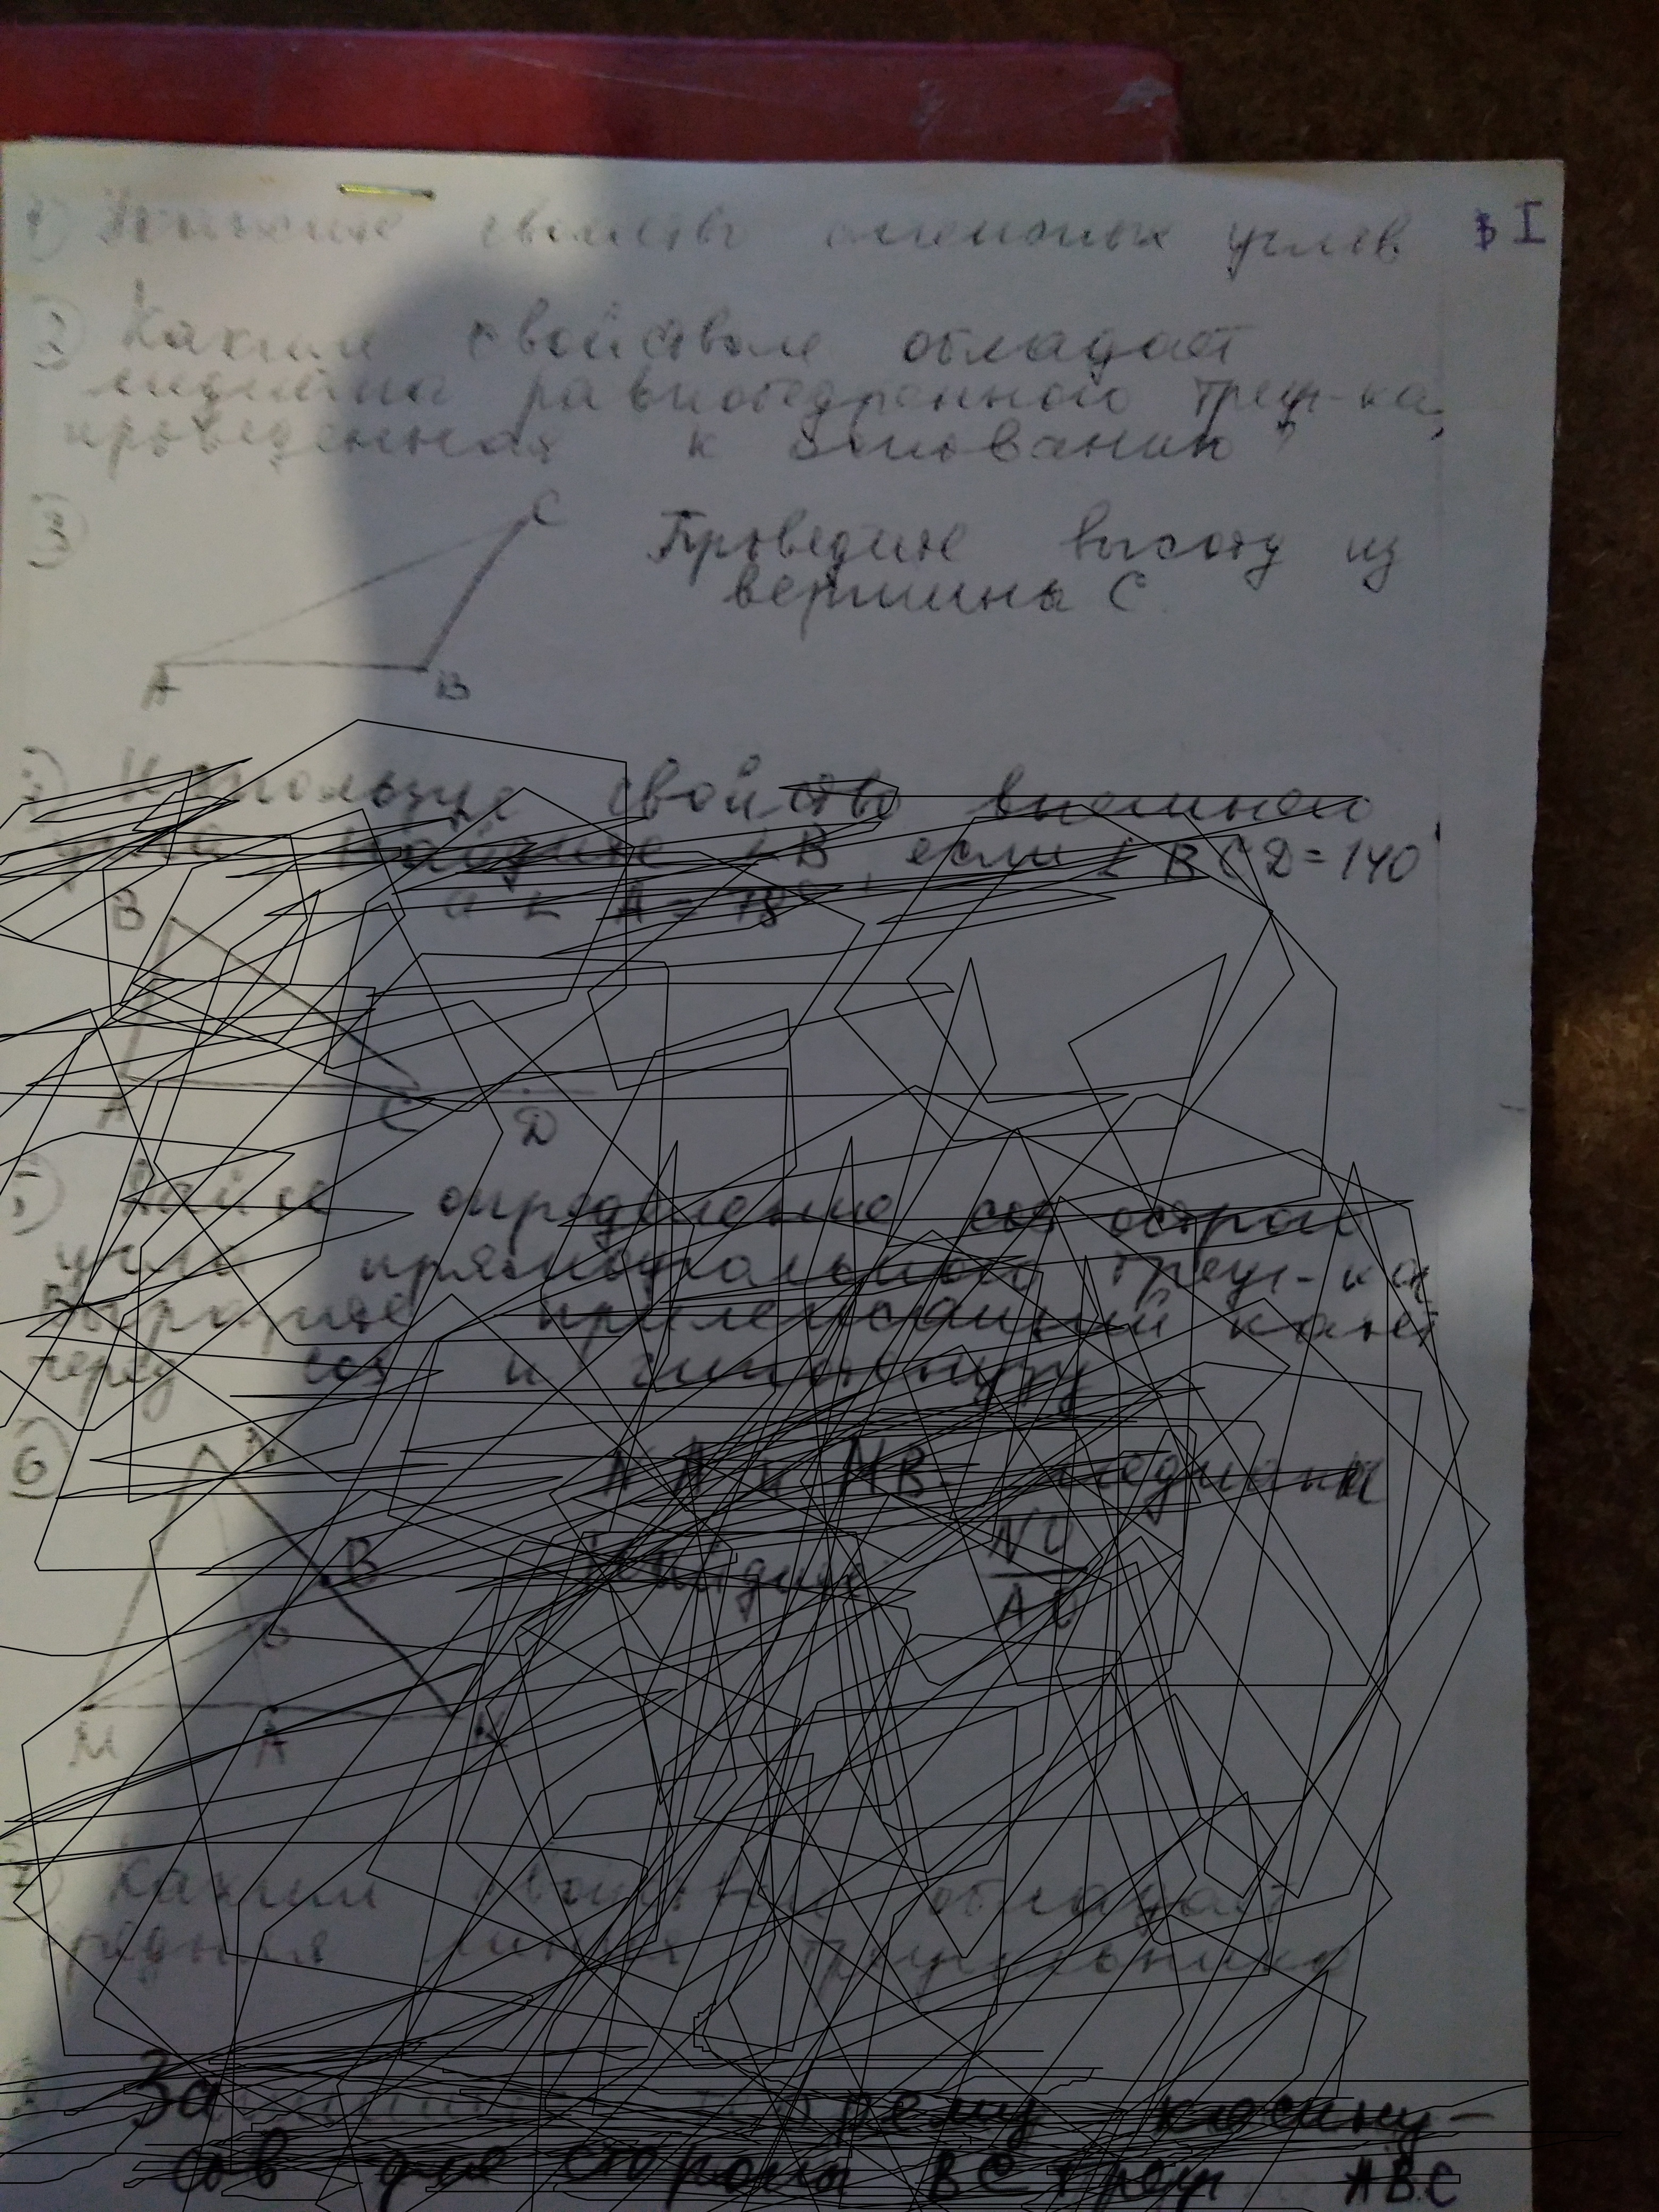 1) Запишите свойство смежных углов
в I
2) Каким свойством обладает
медиана равнобедренного треуг-ка,
проведенная к основанию?
3)
C
Проведите высоту из
вершины С.
A B
Используя свойство внешнего
угла найдите ∠B, если ∠BCD=140°
а ∠A=78°
B
A C D
5) Дайте определение cos острого
угла прямоугольного треуг-ка
Выразите прилежащий катет
через cos и гипотенузу
6) N
NA и MB - медианы
B
Найдите NO
AO
O
M A K
7) Каким свойством обладает
средняя линия треугольника
теорему косину-
сов для стороны BC треуг ABC